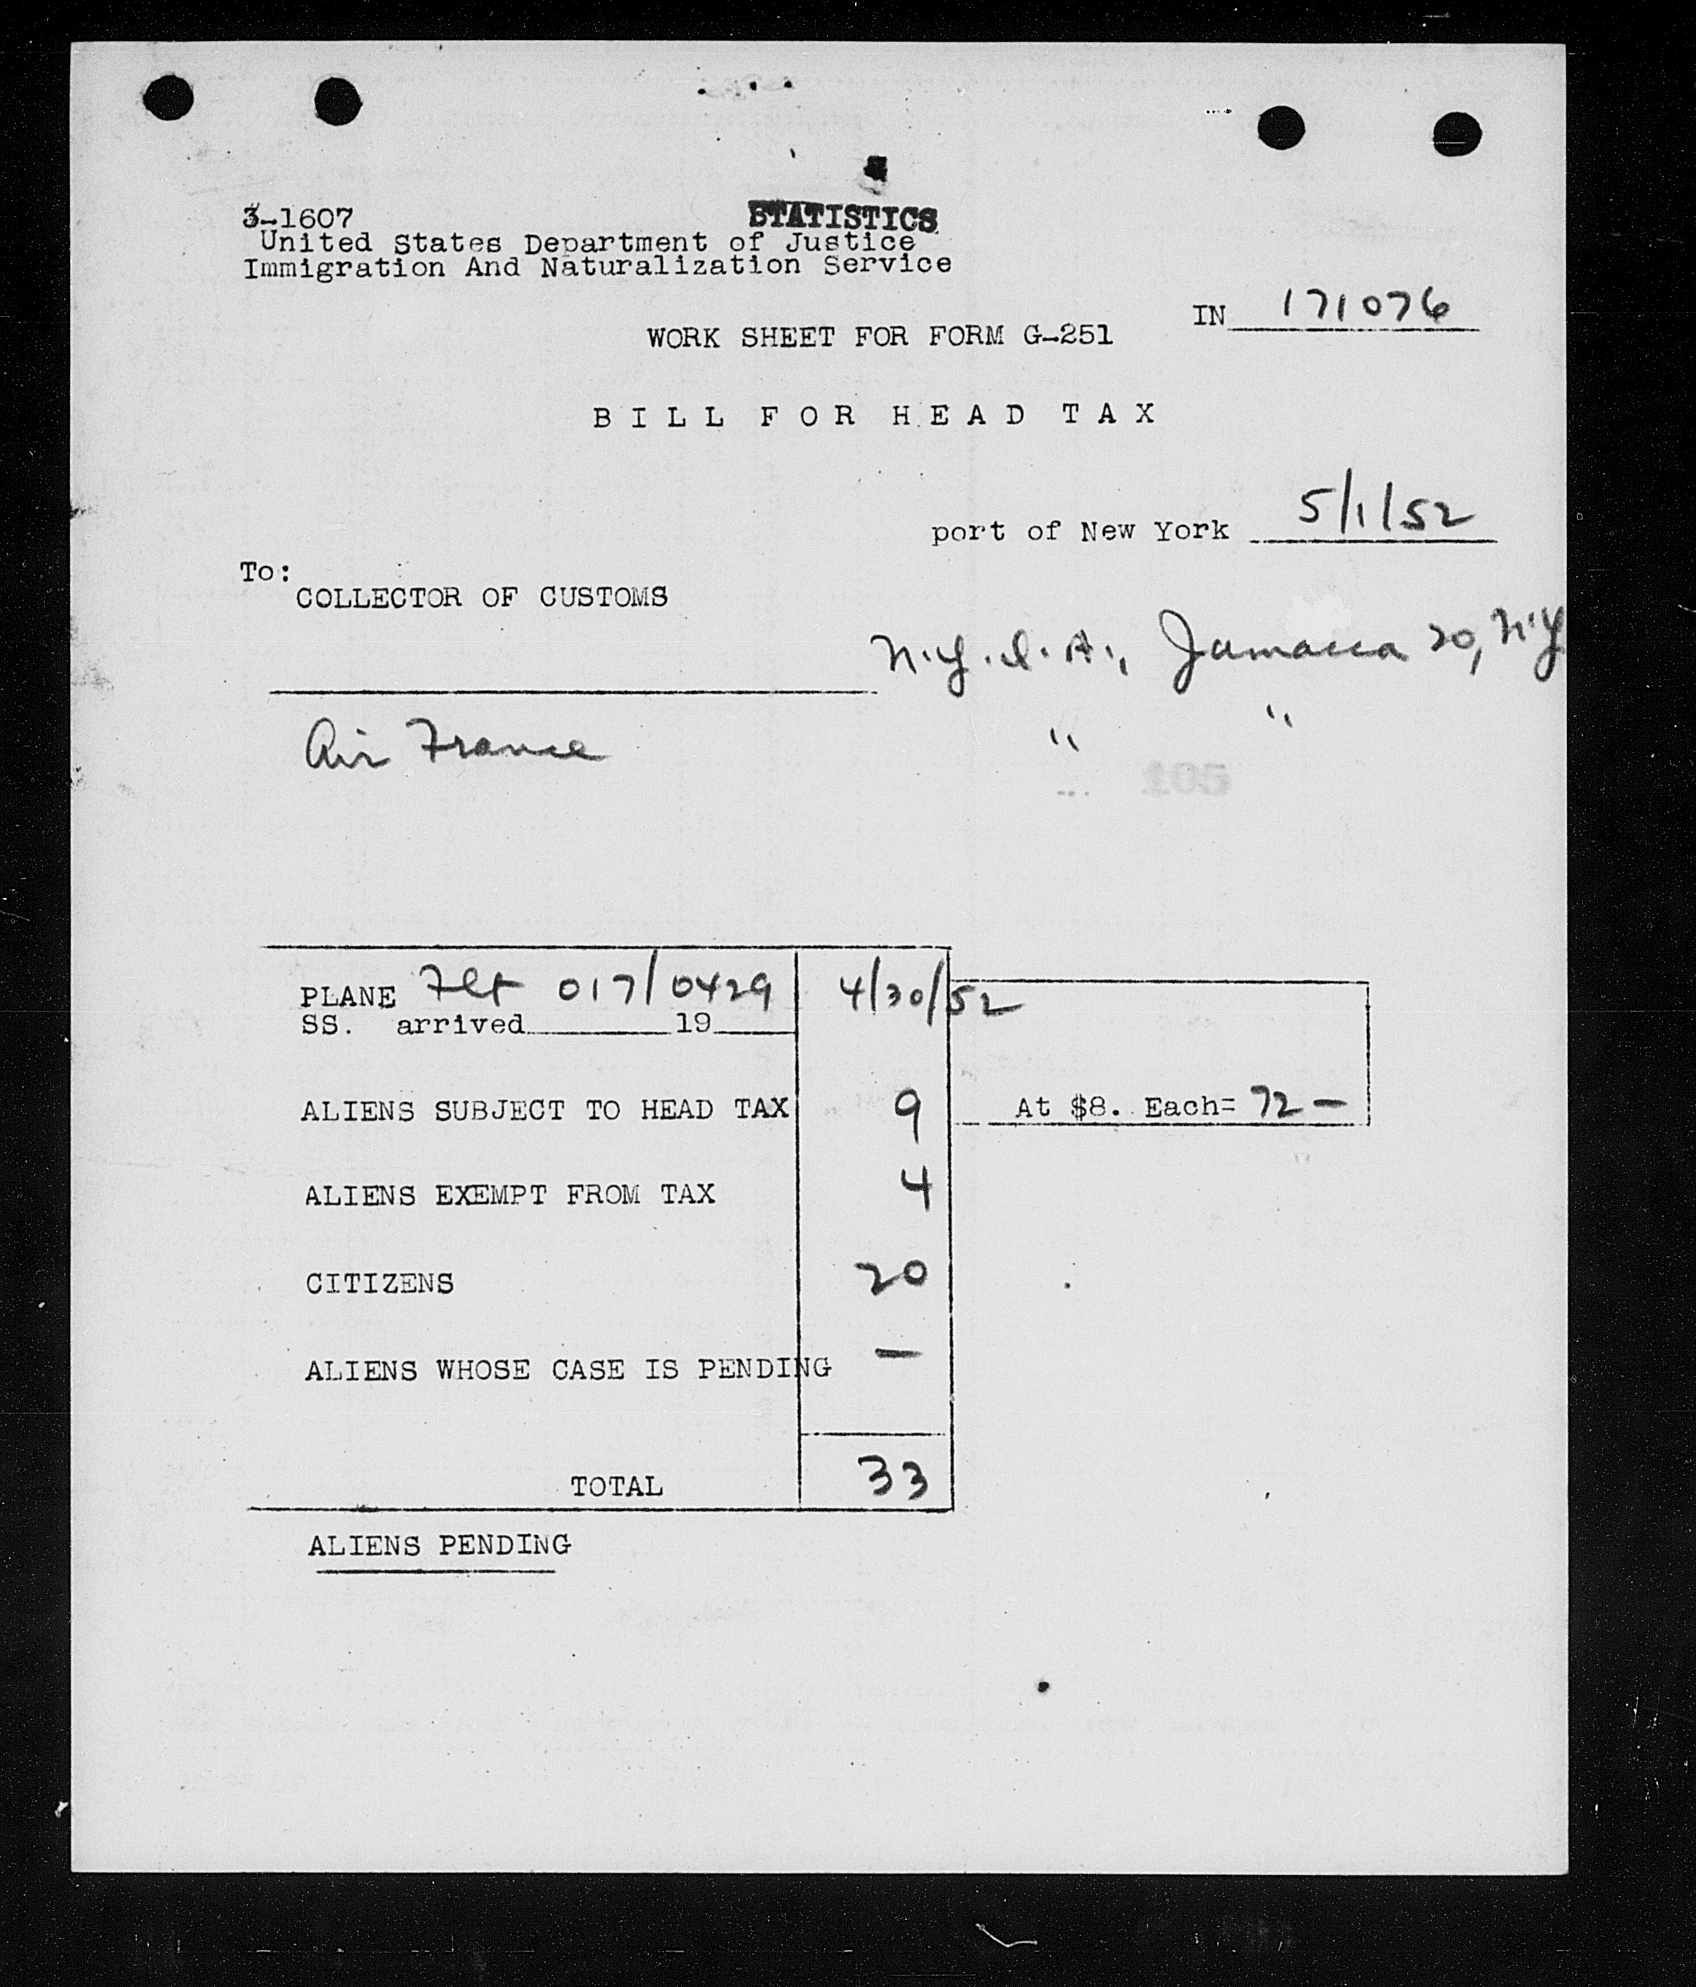 STATISTICS
3-1607
United States Department of Justice
Immigration And Naturalization Service
IN 171076
WORK SHEET FOR FORM G-251
BILL FOR HEAD TAX
port of New York 5/1/52
To:
COLLECTOR OF CUSTOMS
N.Y.I.A., Jamaica 20, N.Y.
Air France " "
105
PLANE Flt 017/0429 4/30/52
SS. arrived 19
ALIENS SUBJECT TO HEAD TAX 9 At $8. Each= 72 —
ALIENS EXEMPT FROM TAX 4
CITIZENS 20
ALIENS WHOSE CASE IS PENDING —
TOTAL 33
ALIENS PENDING